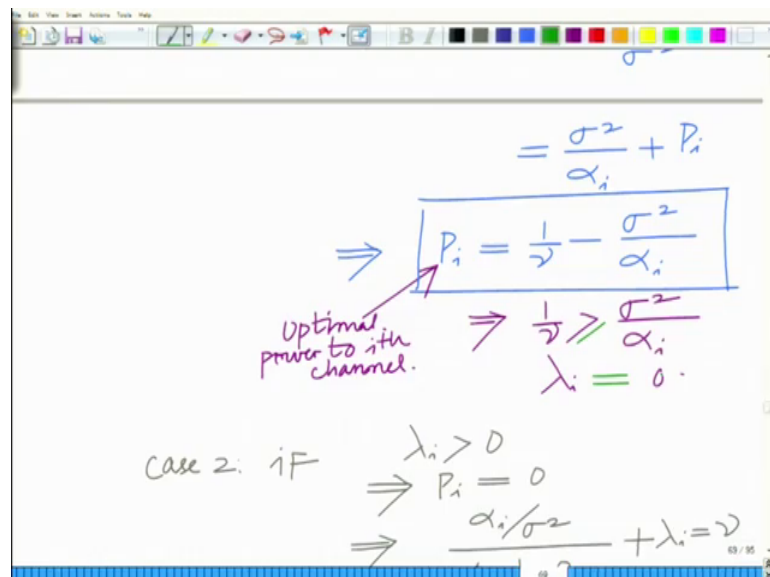 File Edit View Insert Actions Tools Help
B I
σ²
= σ²/αᵢ + Pᵢ
⇒ Pᵢ = 1/ν − σ²/αᵢ
optimal power to ith channel.
⇒ 1/ν ≥ σ²/αᵢ
λᵢ = 0.
case 2: iF λᵢ > 0
⇒ Pᵢ = 0
⇒ αᵢ/σ² + λᵢ = ν
69 / 95